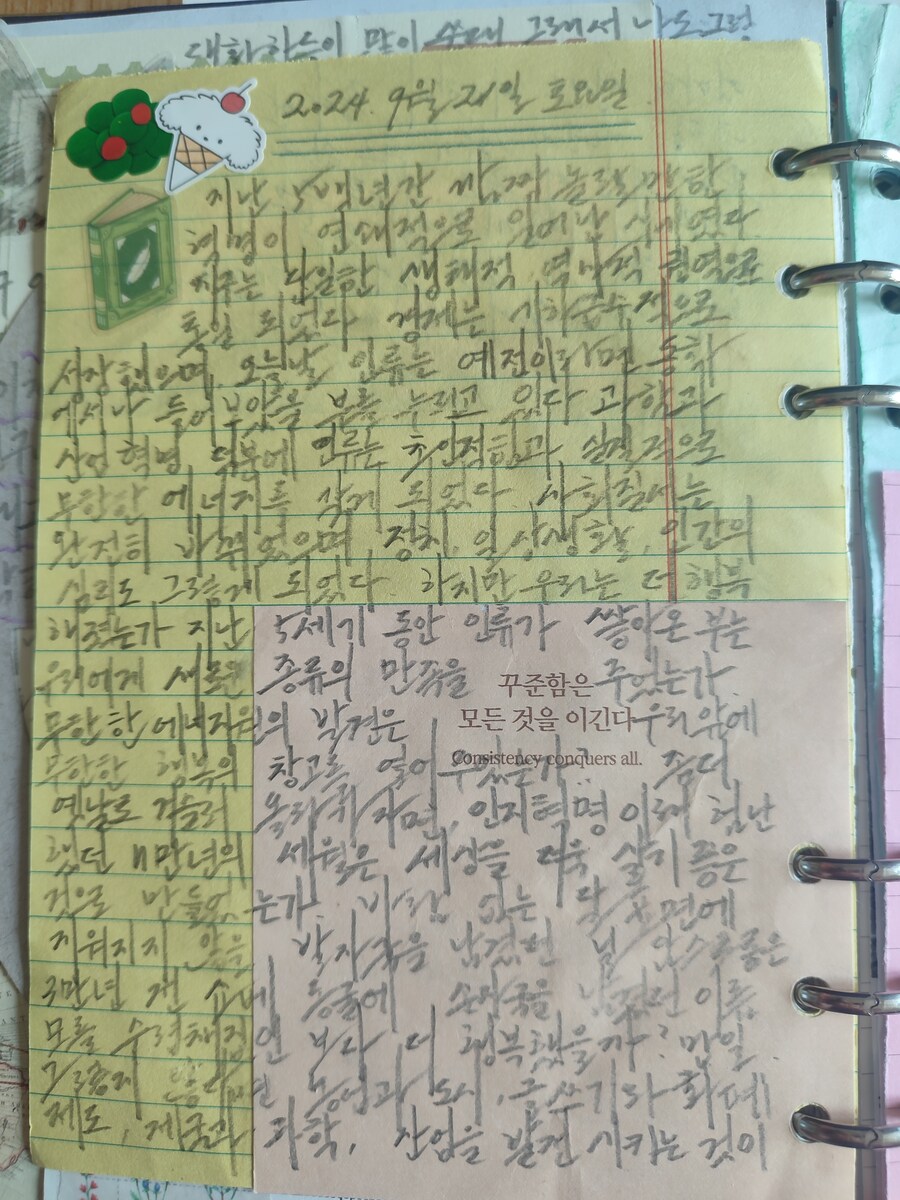 대화하는이 많이 그래서 나도 그렇
2024. 9월 21일 토요일
지난 5백년간 깜짝 놀랄 만한
혁명이 연쇄적으로 일어난 시대였다
지구는 단일한 생태적 역사적 권역으로
통일 되었다 경제는 기하급수적으로
성장했으며, 오늘날 인류는 예전이라면 동화
에서나 들어보았을 부를 누리고 있다 과학과
산업혁명 덕분에 인류는 초인적힘과 실질적으로
무한한 에너지를 갖게 되었다. 사회질서는
완전히 바뀌었으며 정치, 일상생활, 인간의
심리도 그렇게 되었다. 하지만 우리는 더 행복
해졌는가 지난 5세기 동안 인류가 쌓아온 부는
우리에게 새로운 종류의 만족을 주었는가
꾸준함은
모든 것을 이긴다
Consistency conquers all.
무한한 에너지원의 발견은 우리앞에
무한한 행복의 창고를 열어주었는가? 좀더
옛날로 거슬러 올라가자면, 인지혁명 이래 험난
했던 n만년의 세월은 세상을 더욱 살기 좋은
것으로 만들었는가. 바람 없는 달 표면에
지워지지 않을 발자국을 남겼던 닐 암스트롱은
3만년 전 쇼베 동굴에 손자국을 남겼던 이름
모를 수렵채집인 보다 더 행복했을까? 만일
그렇지 않다면 농업과 도시, 글쓰기와 화폐
제도, 제국과 과학, 산업을 발전 시키는 것이